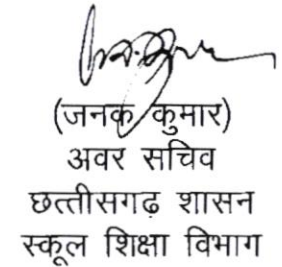 (जनक कुमार)
अवर सचिव
छत्तीसगढ़ शासन
स्कूल शिक्षा विभाग